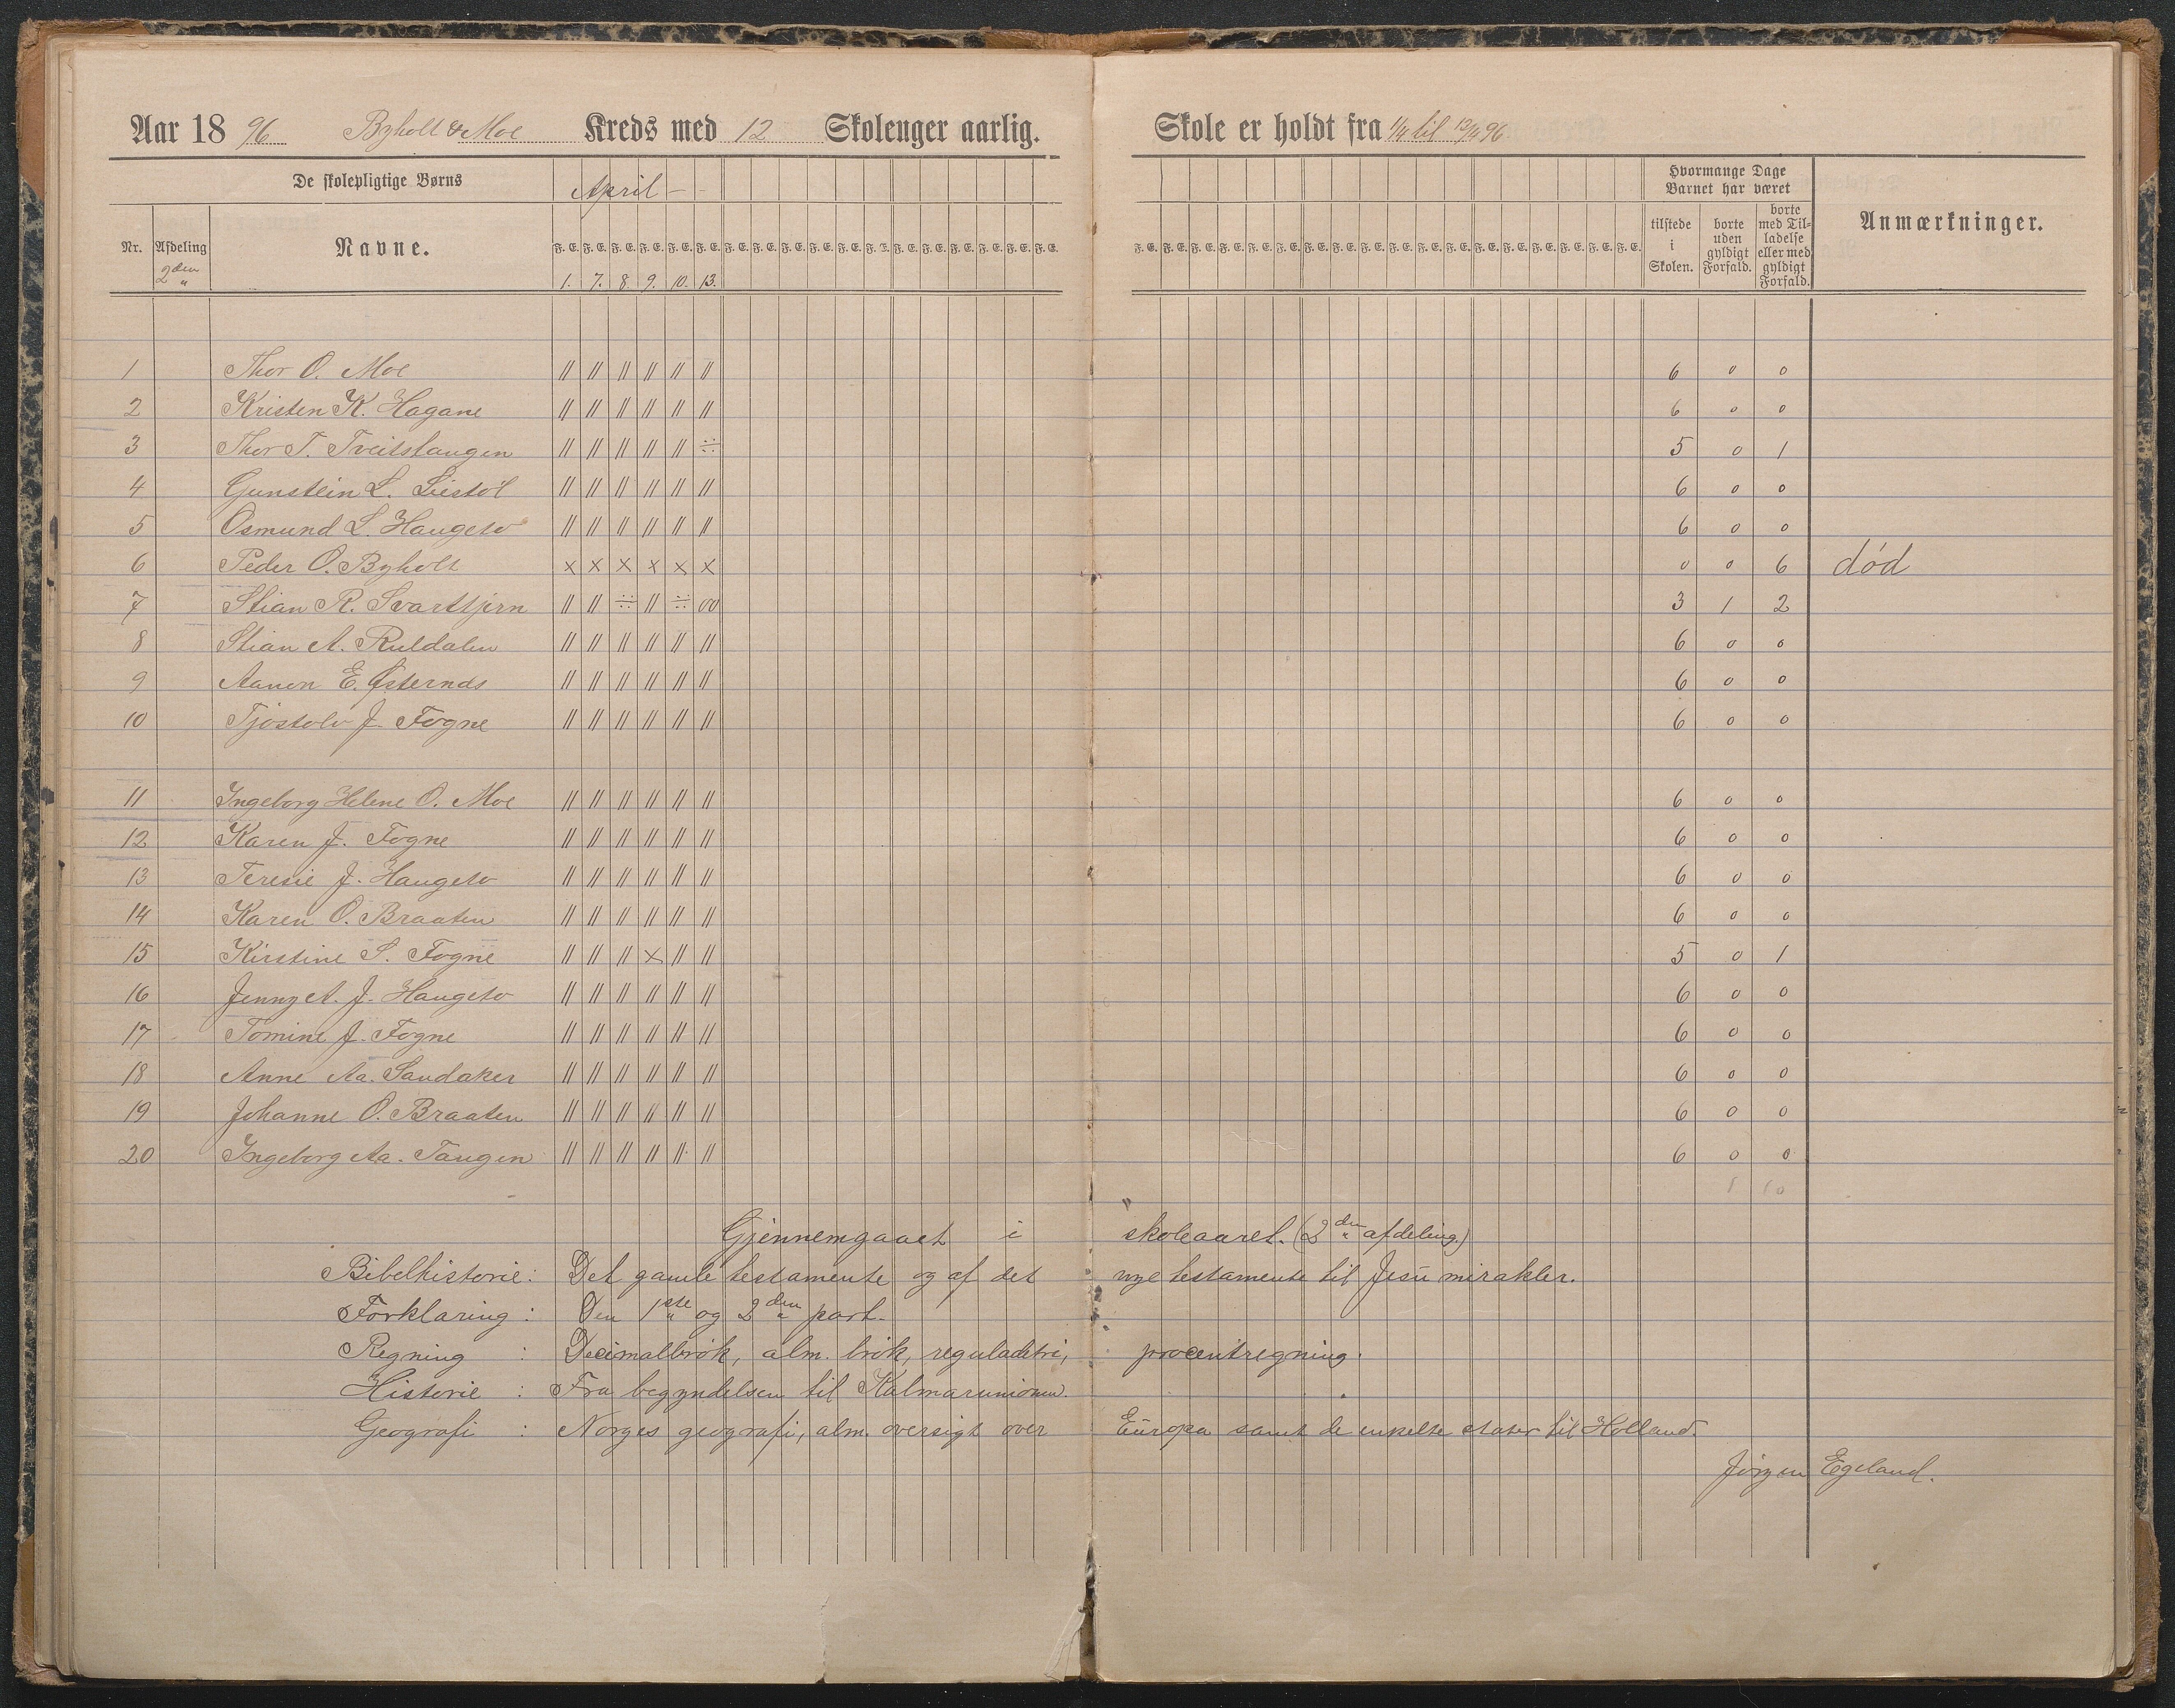 Aar 1896 Byholt & Moe Kreds med 12 Skoleuger aarlig.
Skole er holdt fra 1/4 til 13/4 96
De skolepligtige Børns
April
Hvormange Dage Barnet har været
Anmærkninger.
Nr. Afdeling 2den Navne.
F. E. F. E. F. E. F. E. F. E. F. E. F. E. F. E. F. E. F. E. F. E. F. E. F. E. F. E. F. E. F. E. F. E. F. E.
F. E. F. E. F. E. F. E. F. E. F. E. F. E. F. E. F. E. F. E. F. E. F. E. F. E. F. E. F. E. F. E. F. E. F. E.
tilstede i Skolen.
borte uden gyldigt Forfald.
borte med Tilladelse eller med gyldigt Forfald.
1. 7. 8. 9. 10. 13.
1 Thor O. Moe // // // // // // 6 0 0
2 Kristen K. Hagane // // // // // // 6 0 0
3 Thor T. Tveitstaugen // // // // // ÷÷ 5 0 1
4 Gunstein L. Liestøl // // // // // // 6 0 0
5 Osmund L. Haugeto // // // // // // 6 0 0
6 Peder O. Byholt × × × × × × 0 0 6 død
7 Stian R. Svarttjern // // ÷÷ // ÷÷ 00 3 1 2
8 Stian A. Ruldalen // // // // // // 6 0 0
9 Aanon E. Østernæs // // // // // // 6 0 0
10 Tjostolv J. Fogne // // // // // // 6 0 0
11 Ingeborg Helene O. Moe // // // // // // 6 0 0
12 Karen J. Fogne // // // // // // 6 0 0
13 Teresie J. Haugeto // // // // // // 6 0 0
14 Karen O. Braaten // // // // // // 6 0 0
15 Kirstine S. Fogne // // // × // // 5 0 1
16 Jenny A. J. Haugeto // // // // // // 6 0 0
17 Tomine J. Fogne // // // // // // 6 0 0
18 Anne Aa. Sandaker // // // // // // 6 0 0
19 Johanne O. Braaten // // // // // // 6 0 0
20 Ingeborg Aa. Taugen // // // // // // 6 0 0
1 10
Gjennemgaaet i skoleaaret. (2den afdeling.)
Bibelhistorie: Det gamle testamente og af det nye testamente til Jesu mirakler.
Forklaring: Den 1ste og 2den part.
Regning: Decimalbrøk, alm. brøk, reguladetri, procentregning.
Historie: Fra begyndelsen til Kalmarunionen.
Geografi: Norges geografi, alm. oversigt over Europa samt de enkelte stater til Holland.
Jørgen Egeland.